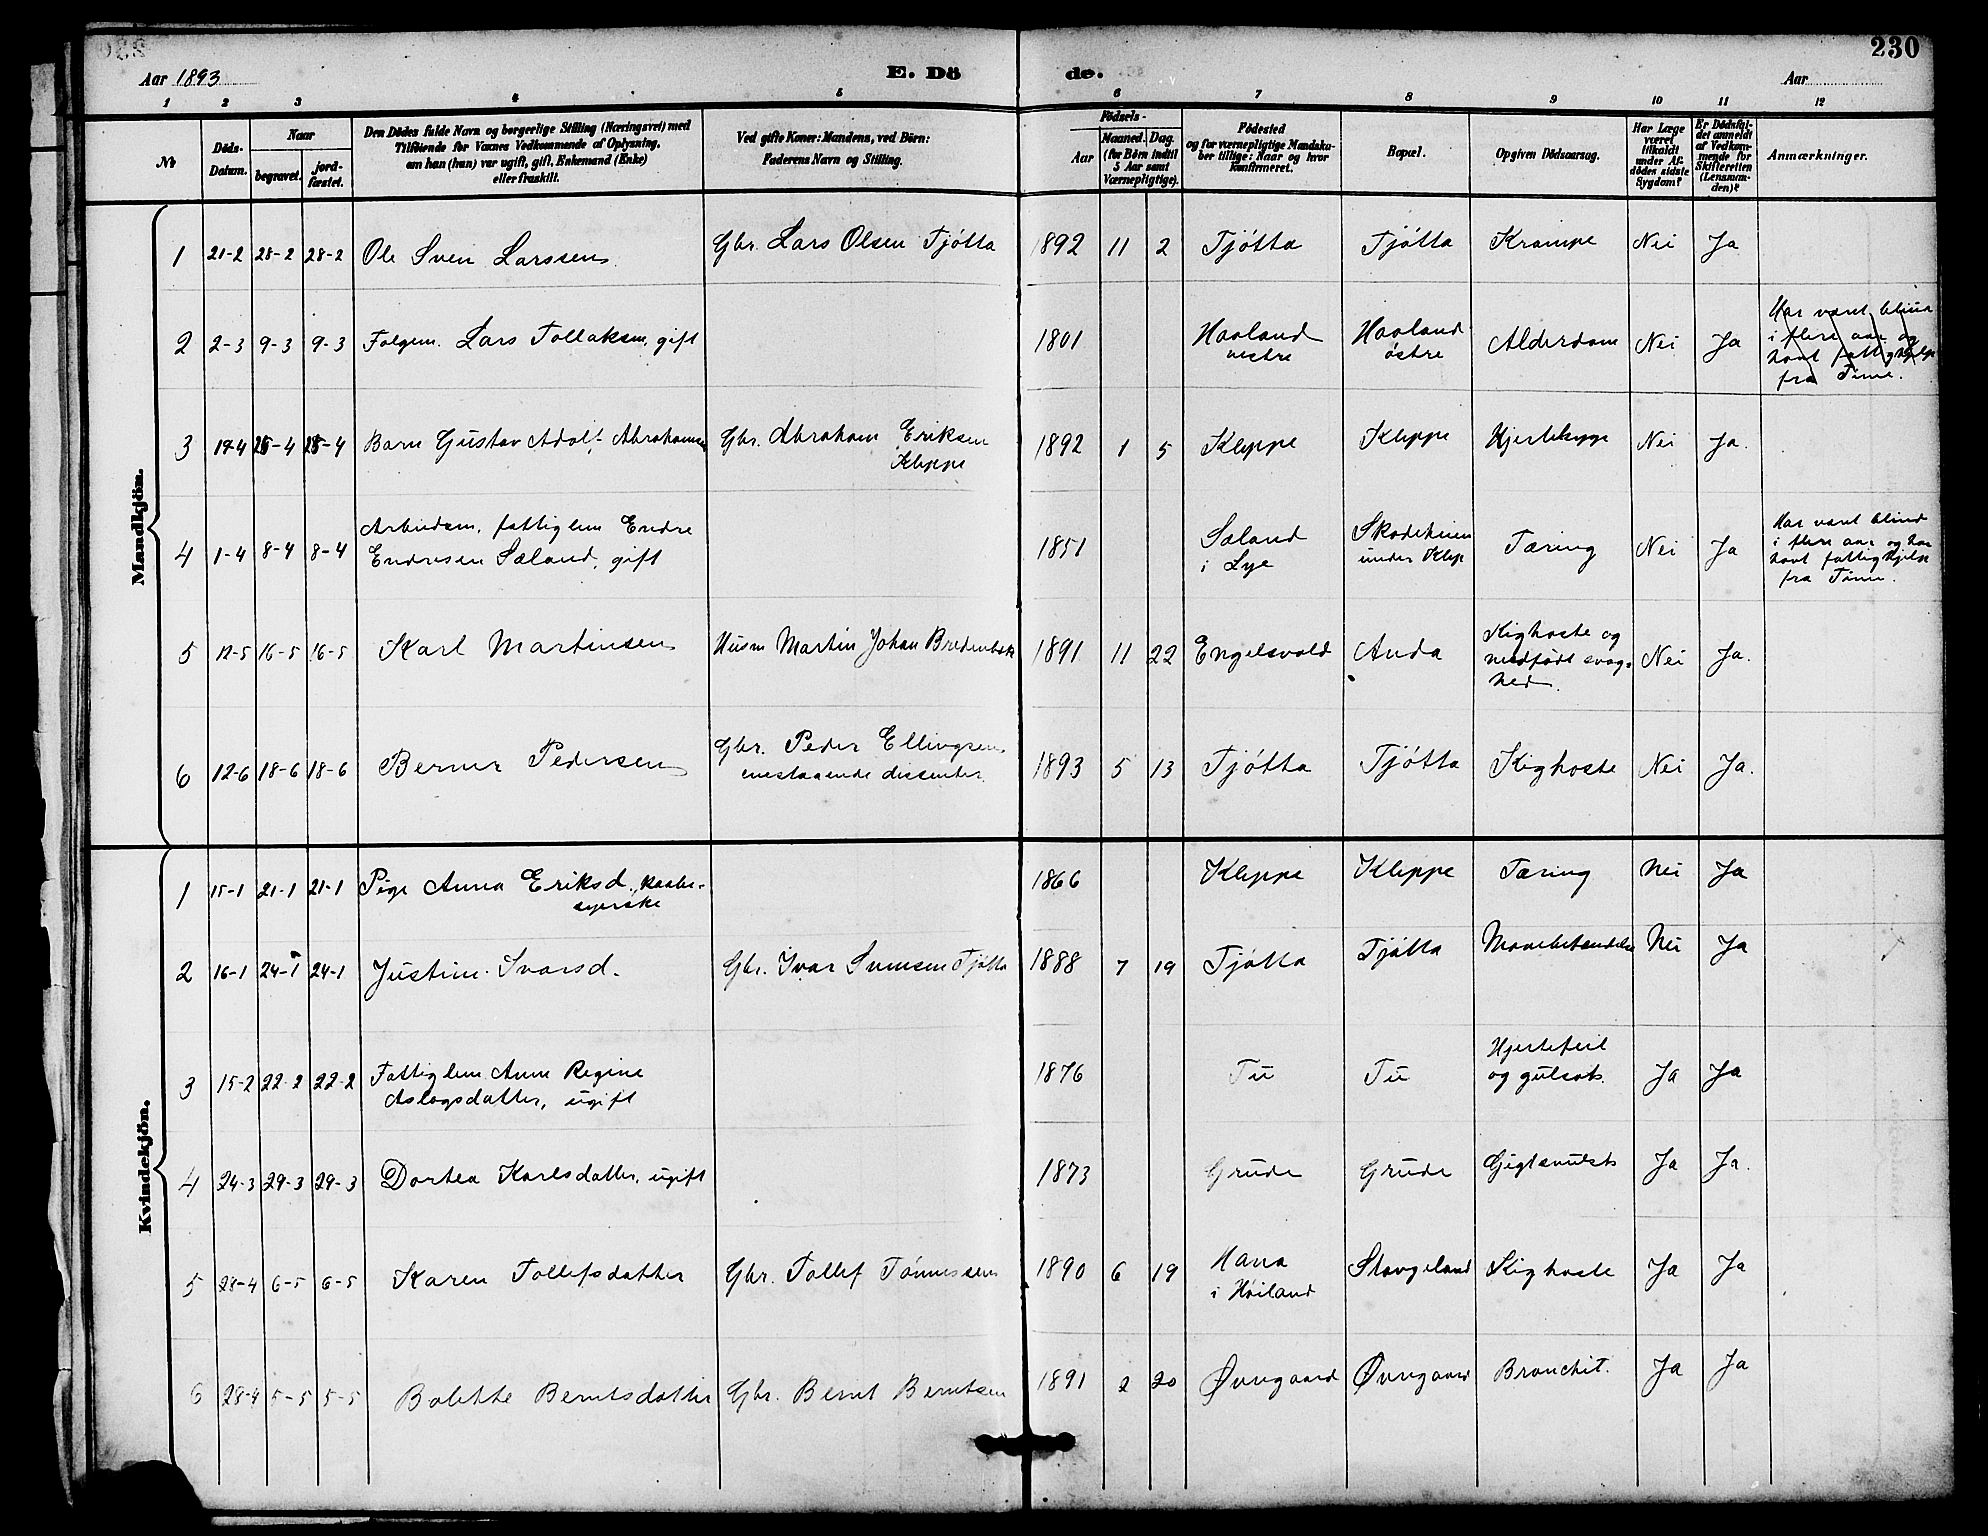 230
Aar 1893
E. Dö
de.
Aar
1 2 3 4 5 6 7 8 9 10 11 12
№
Döds-
Datum.
Naar
begravet.
jord-
fæstet.
Den Dödes fulde Navn og borgerlige Stilling (Næringsvei) med
Tilföiende for Voxnes Vedkommende af Oplysning,
om han (hun) var ugift, gift, Enkemand (Enke)
eller fraskilt.
Ved gifte Koner: Mandens, ved Börn:
Faderens Navn og Stilling.
Födsels-
Aar
Maaned. Dag.
(for Börn indtil
5 Aar samt
Værnepligtige).
Födested
og for værnepligtige Mandska-
ber tillige: Naar og hvor
konfirmeret.
Bopæl.
Opgiven Dödsaarsag.
Har Læge
været
tilkaldt
under Af-
dödes sidste
Sygdom?
Er Dödsfal-
det anmeldt
af Vedkom-
mende for
Skifteretten
(Lensman-
den)?
Anmærkninger.
Mandkjön.
1 21-2 28-2 28-2 Ole Sven Larssen Gbr. Lars Olsen Tjótta 1892 11 2 Tjótta Tjótta Krampe Nei Ja
2 2-3 9-3 9-3 Folgem. Lars Tollaksen, gift 1801 Haaland vestre Haaland östre Alderdom Nei Ja
Har været blind
i flere aar og
havt fattighjelp
fra Time.
3 17-4 25-4 25-4 Barn Gustav Adolf Abrahamsen Gbr. Abraham Eriksen
Kleppe
1892 1 5 Kleppe Kleppe Hjertesyge Nei Ja.
4 1-4 8-4 8-4 Arbeidsm. fattiglem Endre
Endresen Sæland, gift
1851 Sæland
i Lye
Skadeheien
under Klep
Tæring Nei Ja
Har været blind
i flere aar og har
havt fattighjelp
fra Time.
5 12-5 16-5 16-5 Karl Martinsen Husm Martin Johan 1891 11 22 Engelsvold Anda
Kighoste og
medfødt svag-
hed.
Nei Ja.
6 12-6 18-6 18-6 Berner Pedersen Gbr. Peder Ellingsen
enestaaende dissenter.
1893 5 13 Tjótta Tjótta Kighoste Nei Ja.
Kvindekjön.
1 15-1 21-1 21-1 Pige Anna Eriksd., kaabe-
syerske
1866 Kleppe Kleppe Tæring Nei Ja
2 16-1 24-1 24-1 Justine Ivarsd. Gbr. Ivar Svensen Tjótta 1888 7 19 Tjótta Tjótta Mavebetændelse Nei Ja
3 15-2 22-2 22-2 Fattiglem Anne Regine
Aslagsdatter, ugift
1876 Tu Tu Hjertefeil
og gulsot.
Ja Ja
4 24-3 29-3 29-3 Dortea Karlsdatter, ugift 1873 Grude Grude Gigtsvulst Ja Ja.
5 28-4 6-5 6-5 Karen Tollefsdatter Gbr. Tollef Tónnessen 1890 6 19 Hana
i Høiland
Stangeland Kighoste Ja Ja
6 28-4 5-5 5-5 Bolette Berntsdatter Gbr. Bernt Berntsen 1891 2 20 Øvregaard Øvregaard Bronchit. Ja Ja